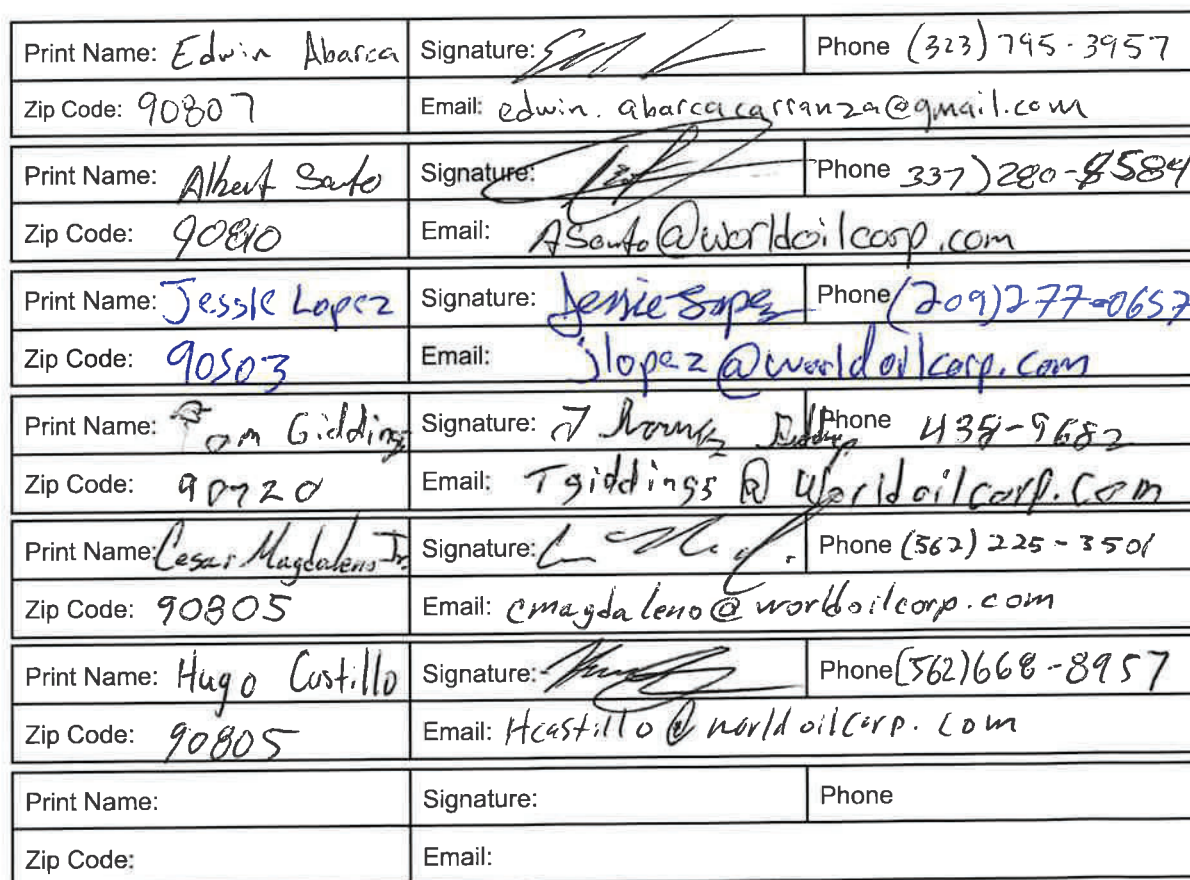 Print Name: Edwin Abarca Signature: Phone (323) 795-3957
Zip Code: 90807 Email: edwin.abarcacarranza@gmail.com
Print Name: Albert Santo Signature: Phone 337) 280-8584
Zip Code: 90810 Email: ASanto@worldoilcorp.com
Print Name: Jessie Lopez Signature: Jessie Lopez Phone (209) 277-0657
Zip Code: 90503 Email: jlopez@worldoilcorp.com
Print Name: Tom Giddings Signature: Phone 435-9682
Zip Code: 90720 Email: Tgiddings@Worldoilcorp.Com
Print Name: Cesar Magdaleno Jr. Signature: Phone (562) 225-3501
Zip Code: 90805 Email: cmagdaleno@worldoilcorp.com
Print Name: Hugo Castillo Signature: Phone (562) 668-8957
Zip Code: 90805 Email: Hcastillo@worldoilcorp.com
Print Name: Signature: Phone
Zip Code: Email: